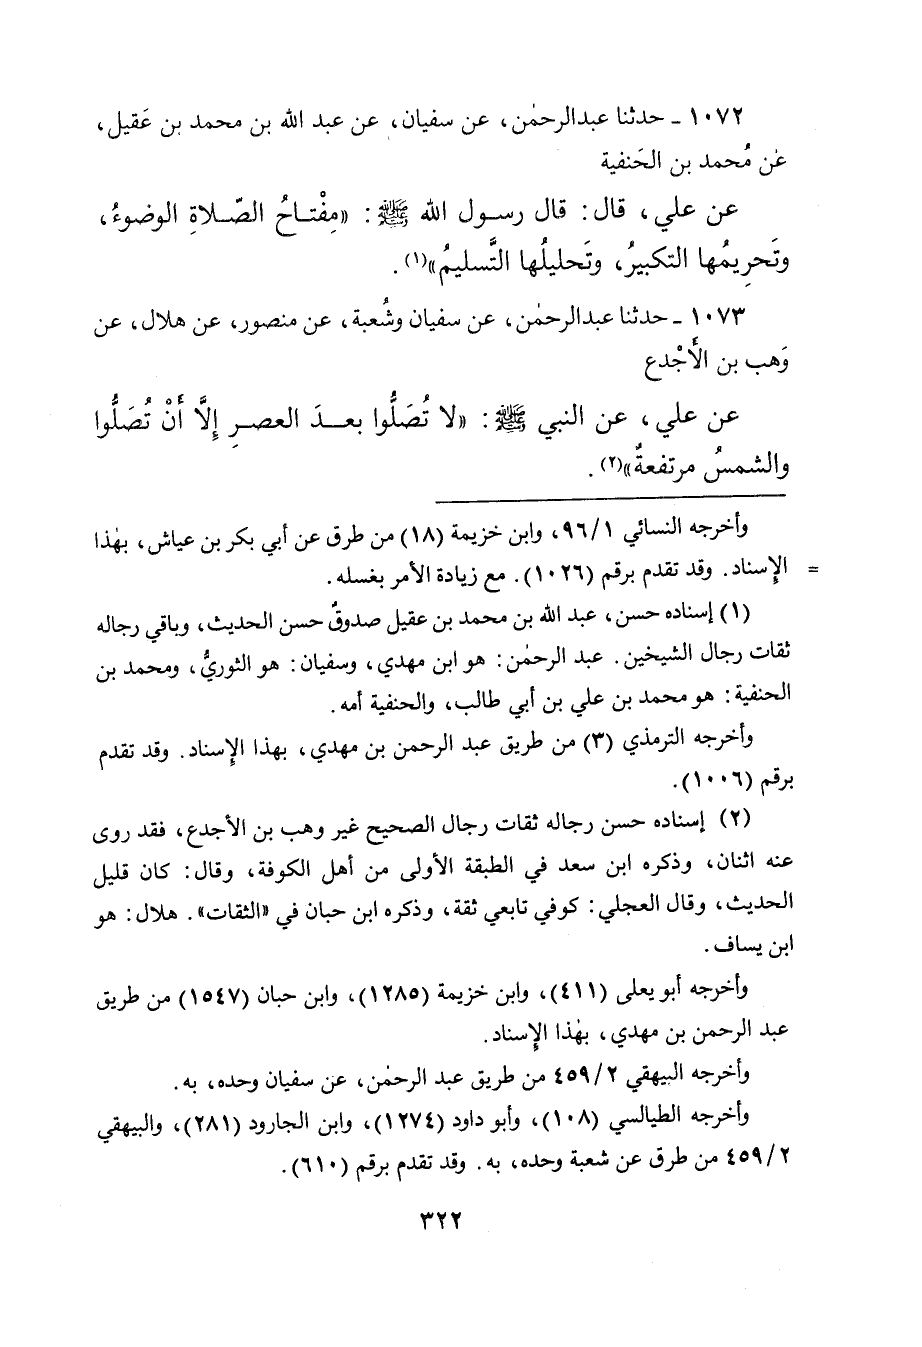 ١٠٧٢ ـ حدثنا عبدالرحمٰن، عن سفيان، عن عبد الله بن محمد بن عَقيل،
عن مُحمد بن الحَنفية
عن علي، قال: قال رسول الله ﷺ: «مِفْتاحُ الصَّلاةِ الوضوءُ،
وتَحرِيمُها التكبيرُ، وتَحليلُها التَّسليمُ»(١).
١٠٧٣ ـ حدثنا عبدالرحمٰن، عن سفيان وشُعبة، عن منصور، عن هلال، عن
وَهب بن الأَجْدع
عن علي، عن النبي ﷺ: «لا تُصَلُّوا بعدَ العصرِ إِلَّا أَنْ تُصَلُّوا
والشمسُ مرتفعةٌ»(٢).
وأخرجه النسائي ٩٦/١، وابن خزيمة (١٨) من طرق عن أبي بكر بن عياش، بهٰذا
= الإِسناد. وقد تقدم برقم (١٠٢٦). مع زيادة الأمر بغسله.
(١) إسناده حسن، عبد الله بن محمد بن عقيل صدوقٌ حسن الحديث، وباقي رجاله
ثقات رجال الشيخين. عبد الرحمٰن: هو ابن مهدي، وسفيان: هو الثوريُّ، ومحمد بن
الحنفية: هو محمد بن علي بن أبي طالب، والحنفية أمه.
وأخرجه الترمذي (٣) من طريق عبد الرحمن بن مهدي، بهذا الإِسناد. وقد تقدم
برقم (١٠٠٦).
(٢) إسناده حسن رجاله ثقات رجال الصحيح غير وهب بن الأجدع، فقد روى
عنه اثنان، وذكره ابن سعد في الطبقة الأولى من أهل الكوفة، وقال: كان قليل
الحديث، وقال العجلي: كوفي تابعي ثقة، وذكره ابن حبان في «الثقات». هلال: هو
ابن يساف.
وأخرجه أبو يعلى (٤١١)، وابن خزيمة (١٢٨٥)، وابن حبان (١٥٤٧) من طريق
عبد الرحمن بن مهدي، بهٰذا الإِسناد.
وأخرجه البيهقي ٤٥٩/٢ من طريق عبد الرحمٰن، عن سفيان وحده، به.
وأخرجه الطيالسي (١٠٨)، وأبو داود (١٢٧٤)، وابن الجارود (٢٨١)، والبيهقي
٤٥٩/٢ من طرق عن شعبة وحده، به. وقد تقدم برقم (٦١٠).
٣٢٢